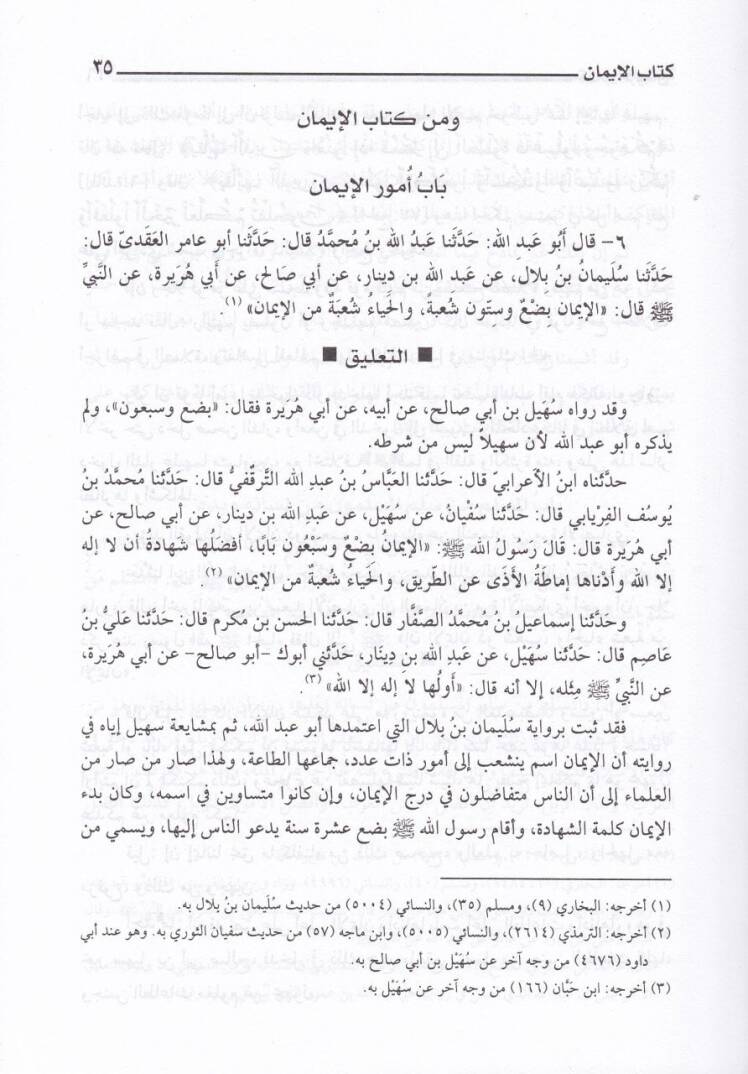 كتاب الإيمان ٣٥
ومن كتاب الإيمان
بابُ أُمور الإيمان
٦- قال أَبُو عَبد الله: حَدَّثَنا عَبدُ الله بنُ مُحمَّدُ قال: حَدَّثَنا أبو عامر العَقَديّ قال:
حَدَّثَنا سُلَيمانُ بنُ بلال، عن عَبد الله بن دِينار، عن أبي صَالح، عن أَبي هُرَيرة، عن النَّبيِّ
ﷺ قال: «الإيمان بِضْعٌ وستون شُعبةً، والحَياءُ شُعبَةٌ من الإيمان» (١)
■ التعليق ■
وقد رواه سهَيْل بن أبي صالح، عن أبيه، عن أبي هُرَيرة فقال: «بضع وسبعون»، ولم
يذكره أبو عبد الله لأن سهيلاً ليس من شرطه.
حَدَّثناه ابنُ الأعرابي قال: حَدَّثَنا العَبَّاس بنُ عبدِ الله التَّرقُفيُّ قال: حَدَّثَنا محمَّدُ بنُ
يُوسُف الفِريابي قال: حَدَّثَنا سُفْيانُ، عن سُهَيْل، عن عَبدِ الله بن دينار، عن أبي صالح، عن
أبي هُرَيرة قال: قالُ رَسُولُ الله ﷺ: «الإيمانُ بِضْعٌ وسَبْعُون بَابًا، أفضَلُها شَهادةُ أن لا إله
إلا الله وأدْنَاها إمَاطَةُ الأذَى عن الطَّريق، والحَياءُ شُعبةٌ من الإيمان» (٢)
وحَدَّثَنا إسماعيلُ بنُ مُحمَّدُ الصَّفَّار قال: حَدَّثَنا الحسن بن مُكرم قال: حَدَّثَنا عَليُّ بنُ
عَاصِم قال: حَدَّثَنا سُهَيْل، عن عَبدِ الله بنِ دِينَار، حَدَّثَني أبوك -أبو صالح- عن أبي هُرَيرة،
عن النَّبيِّ ﷺ مِثله، إلا أنه قال: «أَولُها لا إله إلا الله» (٣).
فقد ثبت برواية سُلَيمان بنُ بلال التي اعتمدها أبو عبد الله، ثم بمشايعة سهيل إياه في
روايته أن الإيمان اسم ينشعب إلى أمور ذات عدد، جماعها الطاعة، ولهذا صار من صار من
العلماء إلى أن الناس متفاضلون في درج الإيمان، وإن كانوا متساوين في اسمه، وكان بدء
الإيمان كلمة الشهادة، وأقام رسول الله ﷺ بضع عشرة سنة يدعو الناس إليها، ويسمي من
(١) أخرجه: البخاري (٩)، ومسلم (٣٥)، والنسائي (٥٠٠٤) من حديث سُلَيمان بن بلال به.
(٢) أخرجه: الترمذي (٢٦١٤)، والنسائي (٥٠٠٥)، وابن ماجه (٥٧) من حديث سفيان الثوري به. وهو عند أبي
داود (٤٦٧٦) من وجه آخر عن سُهَيْل بن أبي صالح به.
(٣) أخرجه: ابن حبَّان (١٦٦) من وجه آخر عن سُهَيْل به.